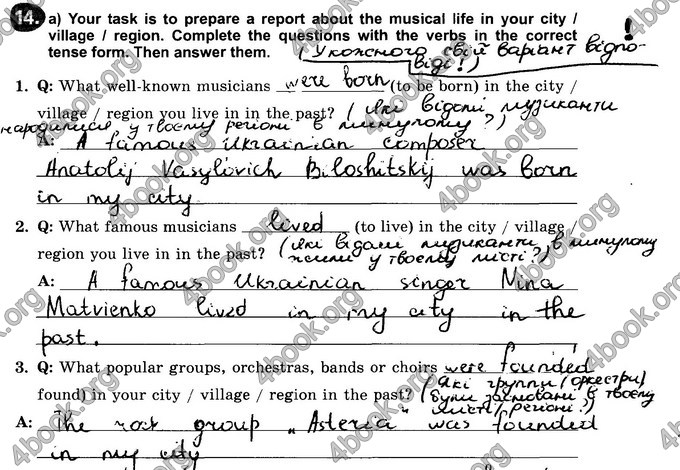 14. a) Your task is to prepare a report about the musical life in your city /
village / region. Complete the questions with the verbs in the correct
tense form. Then answer them. (У кожного свій варіант відпо-
віді!) !
1. Q: What well-known musicians were born (to be born) in the city /
village / region you live in in the past? (Які відомі музиканти
народилися у твоєму регіоні в минулому?)
A: A famous Ukrainian composer
Anatolij Vasylovich Biloshitskij was born
in my city.
2. Q: What famous musicians lived (to live) in the city / village /
region you live in in the past? (Які відомі музиканти в минулому
жили у твоєму місті?)
A: A famous Ukrainian singer Nina
Matvienko lived in my city in the
past.
3. Q: What popular groups, orchestras, bands or choirs were founded
found) in your city / village / region in the past? (Які групи (оркестри)
були засновані в твоєму
місті/регіоні?)
A: The rost group „Asteria" was founded
in my city
4book.org
4book.org
4book.org
4book.org
4book.org
4book.org
4book.org
4book.org
4book.org